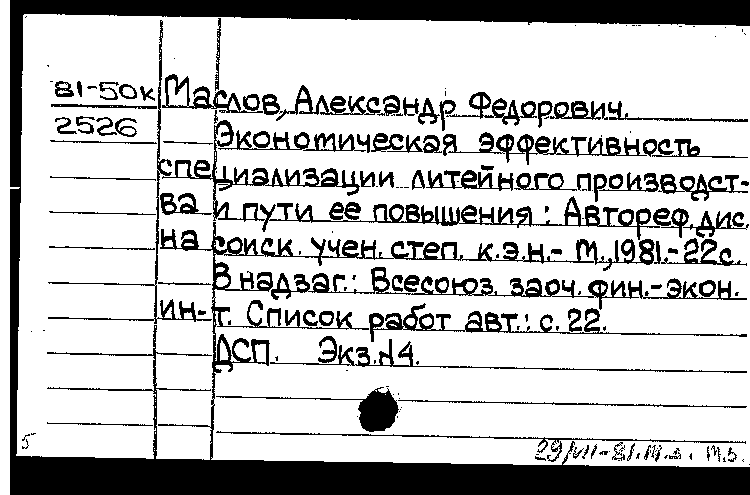 81-50к Маслов, Александр Федорович.
2526 Экономическая эффективность
специализации литейного производст-
ва и пути ее повышения : Автореф. дис.
на соиск. учен. степ. к.э.н.- М., 1981.-22с.
В надзаг.: Всесоюз. заоч. фин.-экон.
ин-т. Список работ авт.: с. 22.
ДСП. Экз.№4.
5
29/VII-81.